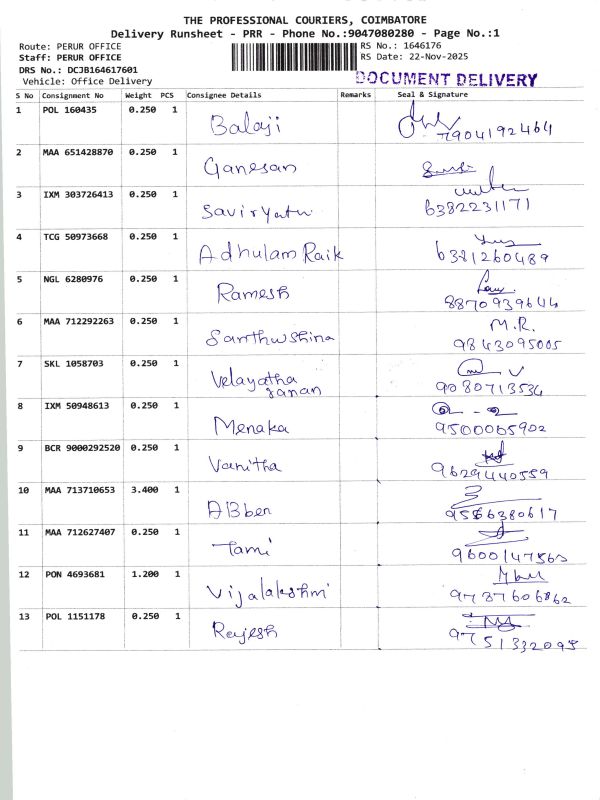 THE PROFESSIONAL COURIERS, COIMBATORE
Delivery Runsheet - PRR - Phone No.:9047080280 - Page No.:1
Route: PERUR OFFICE RS No.: 1646176
Staff: PERUR OFFICE RS Date: 22-Nov-2025
DRS No.: DCJB164617601
Vehicle: Office Delivery DOCUMENT DELIVERY
S No Consignment No Weight PCS Consignee Details Remarks Seal & Signature
1 POL 160435 0.250 1 Balaji 7904192464
2 MAA 651428870 0.250 1 Ganesan
3 IXM 303726413 0.250 1 6382231171
4 TCG 50973668 0.250 1 Adhulam Raik 6381260489
5 NGL 6280976 0.250 1 Ramesh 8870939644
6 MAA 712292263 0.250 1 Santhwshina M.R.
9843095005
7 SKL 1058703 0.250 1 Velayatha 9080713534
8 IXM 50948613 0.250 1 Menaka 9500065902
9 BCR 9000292520 0.250 1 Vanitha 9629440559
10 MAA 713710653 3.400 1 ABben 9566380617
11 MAA 712627407 0.250 1 Tami
12 PON 4693681 1.200 1 Vijalakshmi
13 POL 1151178 0.250 1 Rejesh 9751332095